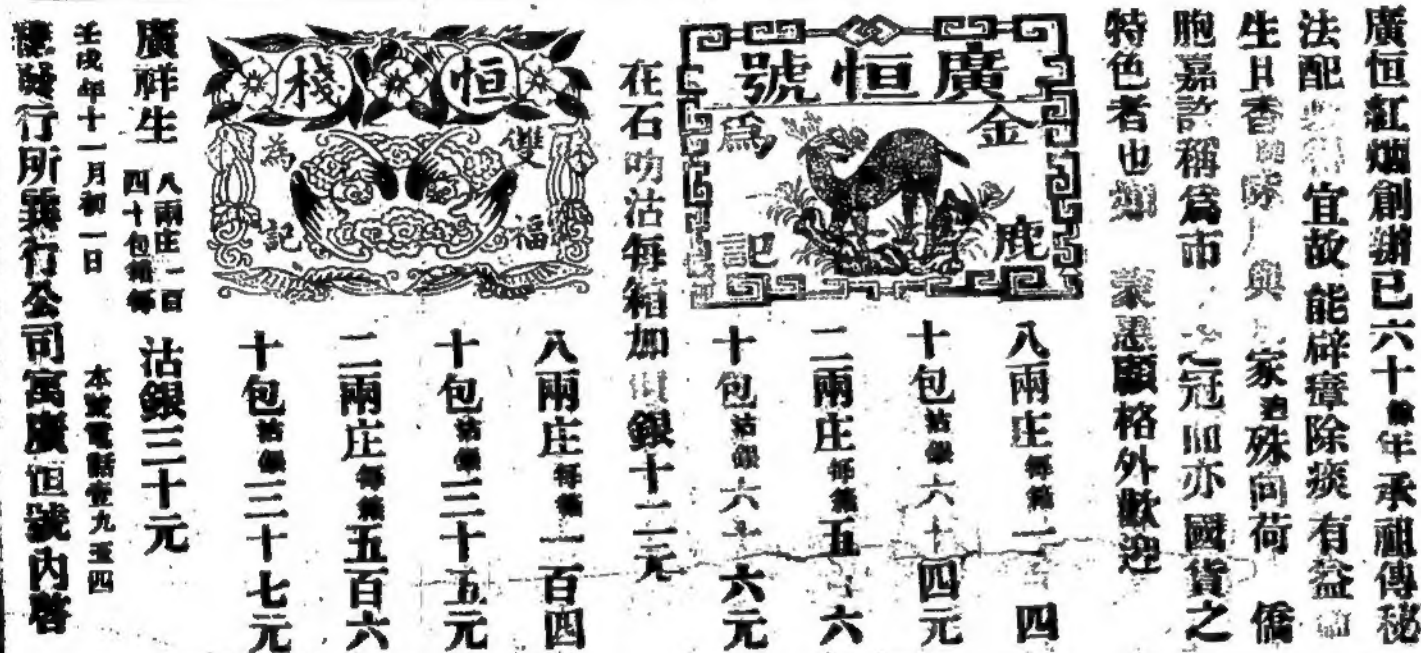 廣恒紅烟創辦已六十餘年承祖傳秘
法配宜故能辟瘴除痰有益
生且香與家殊向荷 僑
胞嘉許稱為市之冠而亦國貨之
特色者也如 蒙惠顧格外歡迎
廣恒號
金鹿
為記
八兩庄每箱二百四
十包沽銀六十四元
二兩庄每箱五百六
十包沽銀六十六元
在石叻沽每箱加銀十二元
恒棧
雙福
為記
八兩庄每箱二百四
十包沽銀三十五元
二兩庄每箱五百六
十包沽銀三十七元
廣祥生 八兩庄一百四十包箱每 沽銀三十元
壬戌年十一月初一日 本號電話壹九五四
總發行所巽行公司寓廣恒號內啓